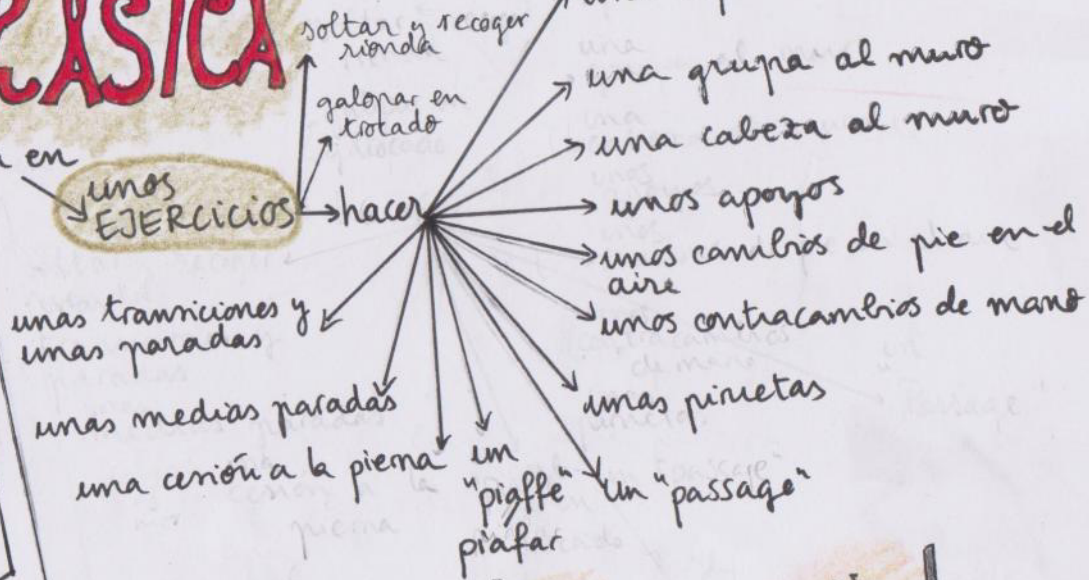 CLÁSICA
soltar y recoger
rienda
galopar en
trotado
en
unos
EJERCICIOS
hacer
una grupa al muro
una cabeza al muro
unos apoyos
unos cambios de pie en el
aire
unos contracambios de mano
unas piruetas
un "passage"
un
"piaffe"
piafar
una cesión a la pierna
unas medias paradas
unas transiciones y
unas paradas